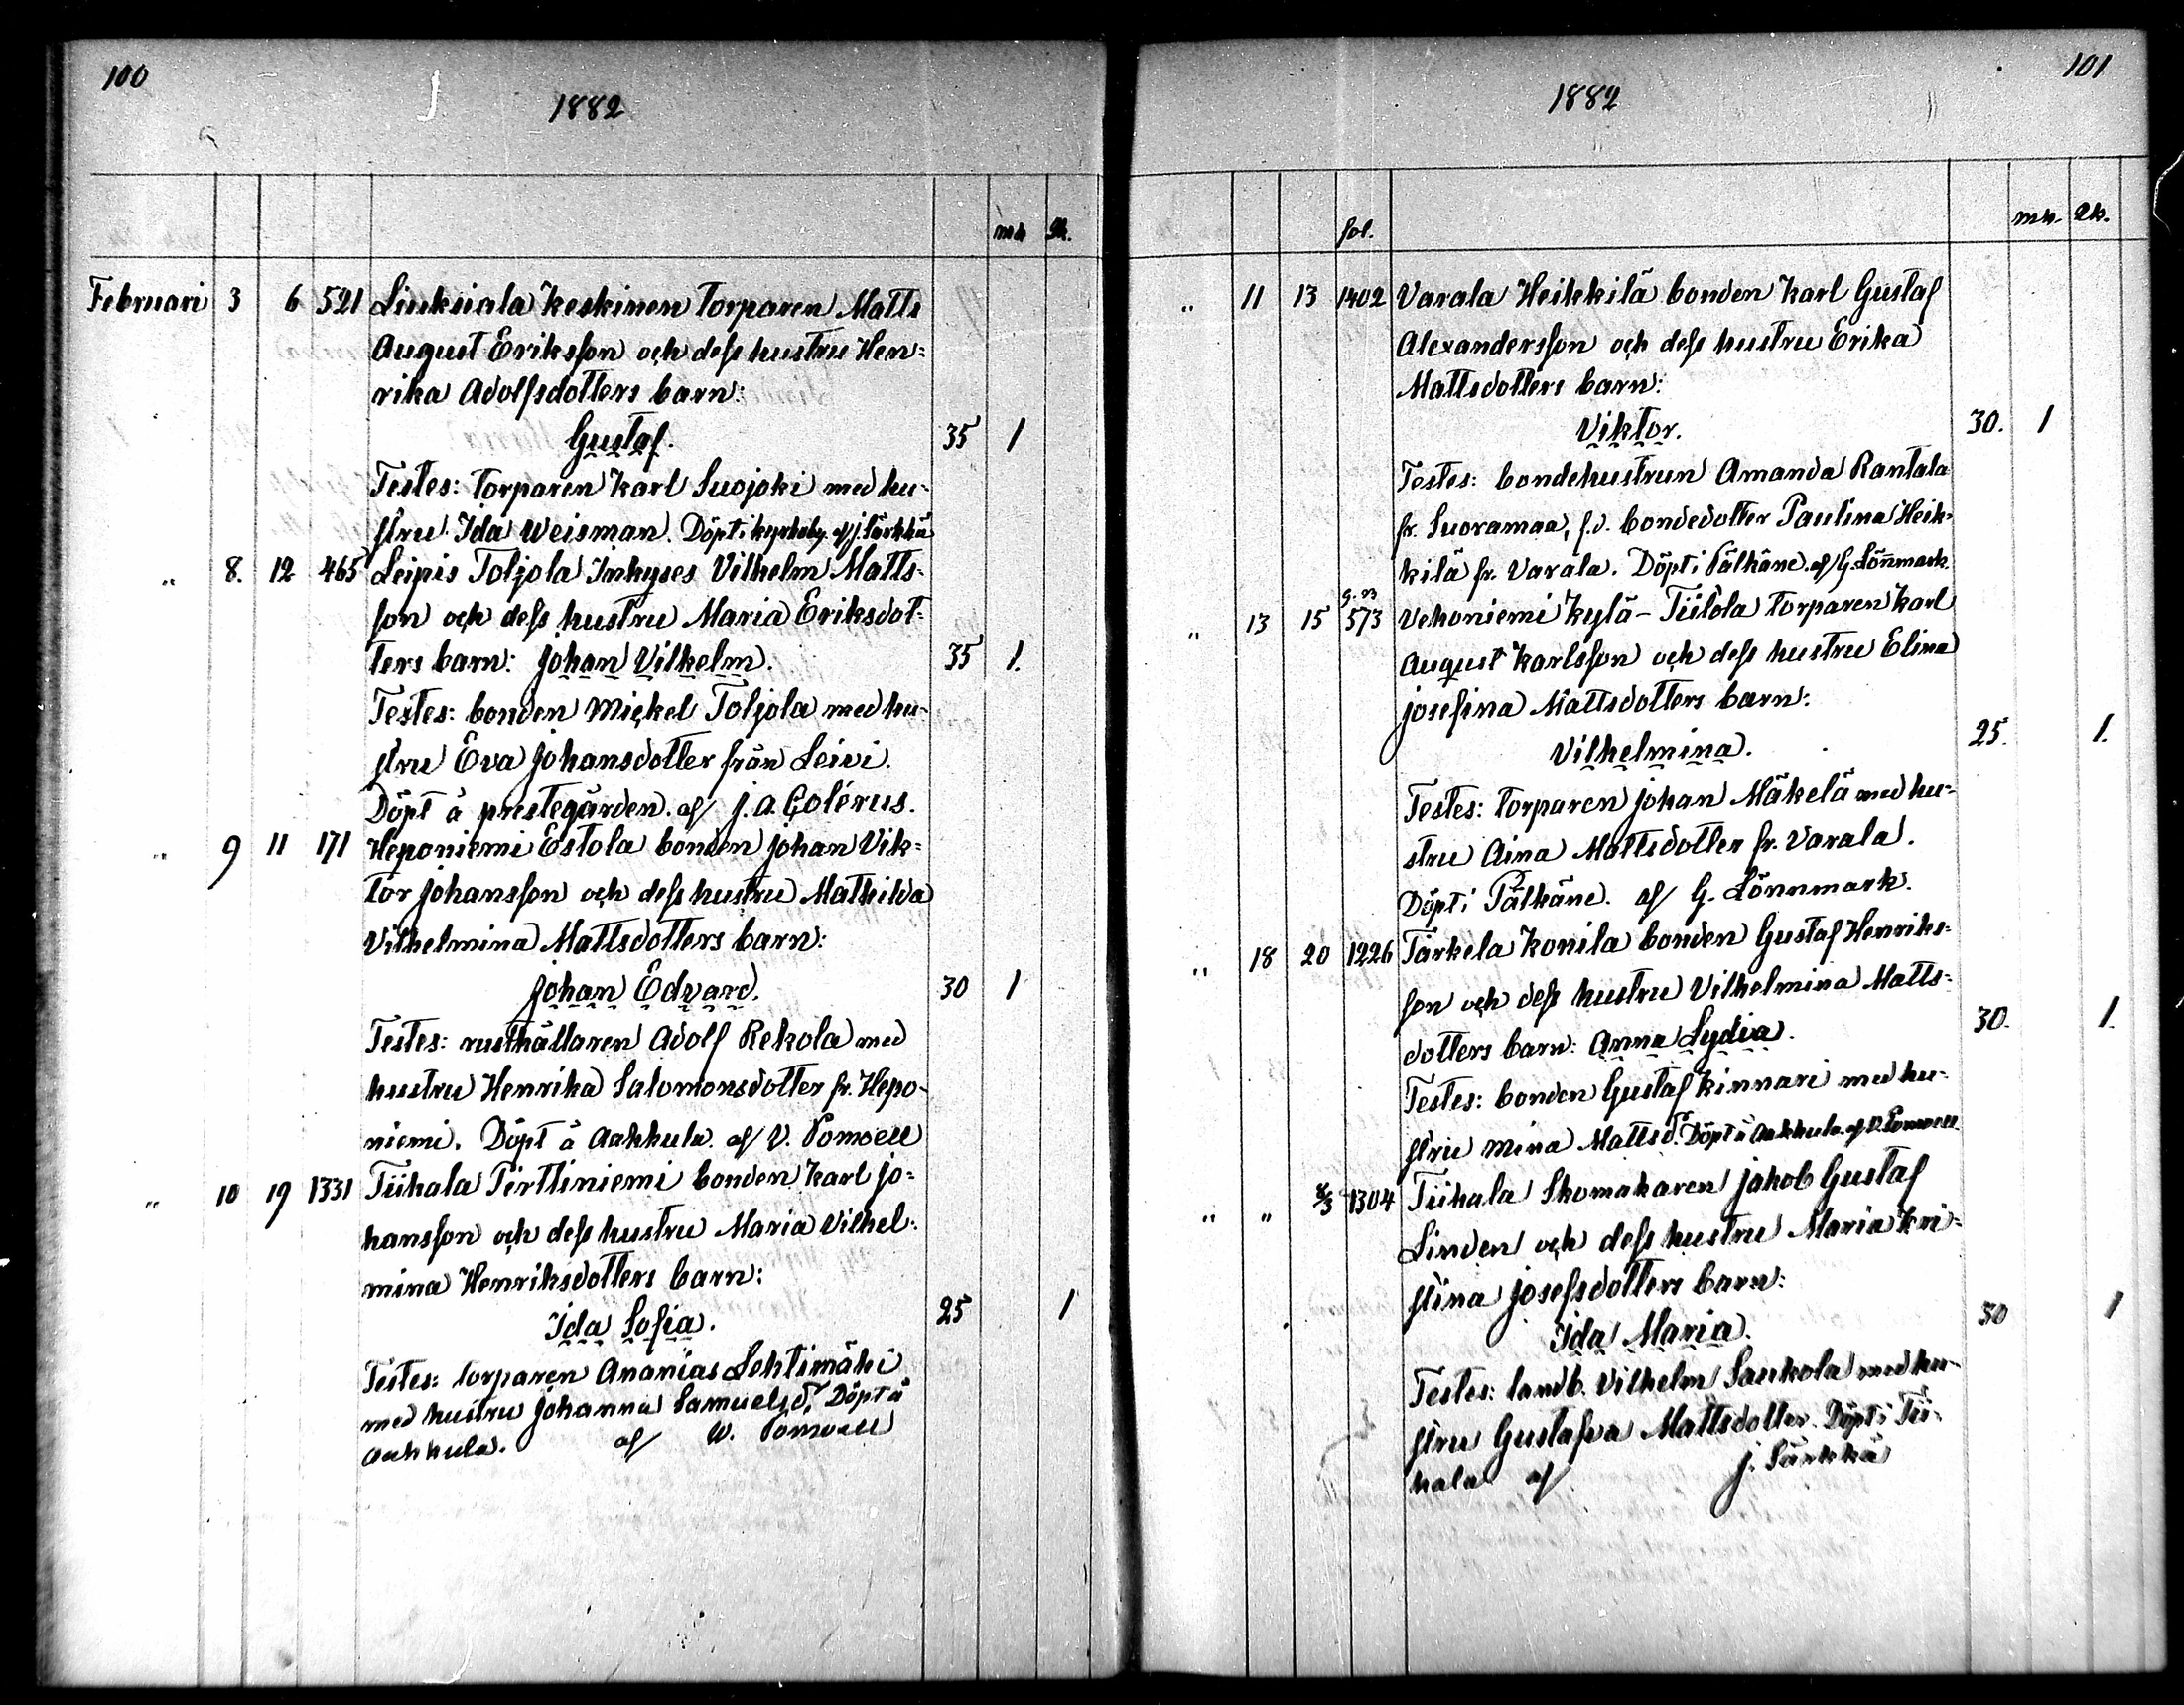 100
1882
mk qk.
Februari 3 6 521 Liuksiala Keskinen torparen Matts
August Eriksson och dess hustru Hen-
rika Adolfsdotters barn:
Gustaf. 35 1
Testes: torparen Karl Suojoki med hu-
stru Ida Weisman. Döpt i kyrkoby. af J. Särkkä
" 8. 12 465 Leipis Toljola Inhyses Vilhelm Matts-
son och dess hustru Maria Eriksdot-
ters barn: Johan Vilhelm. 35 1.
Testes: bonden Mickel Toljola med hu-
stru Eva Johansdotter från Leivi.
Döpt å prestegården. af J. A. Golérus.
" 9 11 171 Heponiemi Estola bonden Johan Vik-
tor Johansson och dess hustru Mathilda
Vilhelmina Mattsdotters barn:
Johan Edvard. 30 1
Testes: rusthållaren Adolf Rekola med
hustru Henrika Salomonsdotter fr. Hepo-
niemi. Döpt å Aakkula. af V. Pomoell
" 10 19 1331 Tiihala Perttiniemi bonden Karl Jo-
hansson och dess hustru Maria Vilhel-
mina Henriksdotters barn:
Ida Sofia. 25 1
Testes: torparen Ananias Lehtimäki
med hustru Johanna Samuelsd. Döpt å
Aakkula. af W. Pomoell
101
1882
fol. mk. qk.
" 11 13 1402 Varala Heikkilä bonden Karl Gustaf
Alexandersson och dess hustru Erika
Mattsdotters barn:
Viktor. 30. 1
Testes: bondehustrun Amanda Rantala
fr. Suoramaa, f.d. bondedotter Paulina Heik-
kilä fr. Varala. Döpt i Pälkäne. af G. Lönnmark.
" 13 15 573 Vehoniemi Kylä-Tiitola torparen Karl
August Karlsson och dess hustru Elina
Josefina Mattsdotters barn:
Vilhelmina. 25. 1.
Testes: torparen Johan Mäkelä med hu-
stru Aina Mattsdotter fr. Varala.
Döpt i Pälkäne. af G. Lönnmark.
" 18 20 1226 Tarkela Konila bonden Gustaf Henriks-
son och dess hustru Vilhelmina Matts-
dotters barn: Anna Lydia. 30. 1.
Testes: bonden Gustaf Kinnari med hu-
stru Mina Mattsd. Döpt å Aakkula af V. Pomoell.
" " 1304 Tiihala Skomakaren Jakob Gustaf
Linden och dess hustru Maria Kri-
stina Josefsdotters barn:
Ida Maria. 30 1
Testes: landb. Vilhelm Saukola med hu-
stru Gustafva Mattsdotter. Döpt i Tii-
hala af J. Särkkä